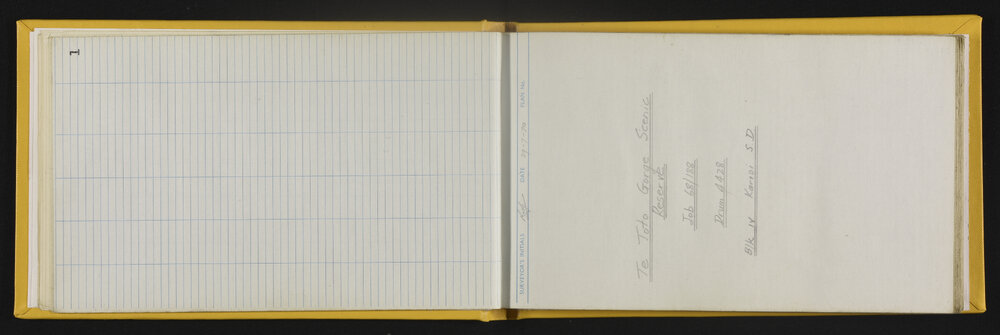 1
SURVEYOR'S INITIALS DATE 29-7-70 PLAN No.
Te Toto Gorge Scenic
Reserve
Job 68/188
Blk IV Karioi S.D